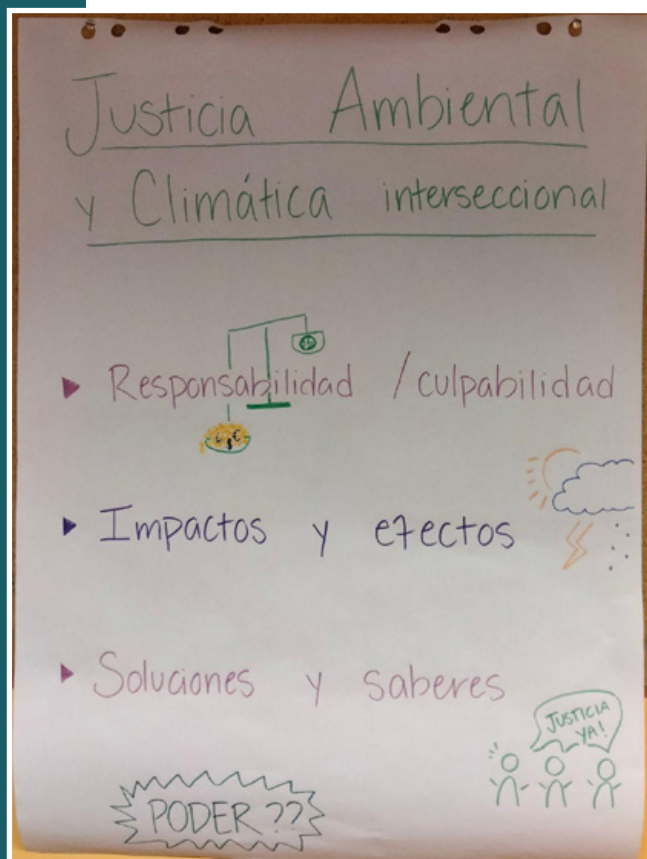 Justicia Ambiental
y Climática interseccional
Responsabilidad / culpabilidad
Impactos y efectos
Soluciones y saberes
JUSTICIA
YA!
PODER ??